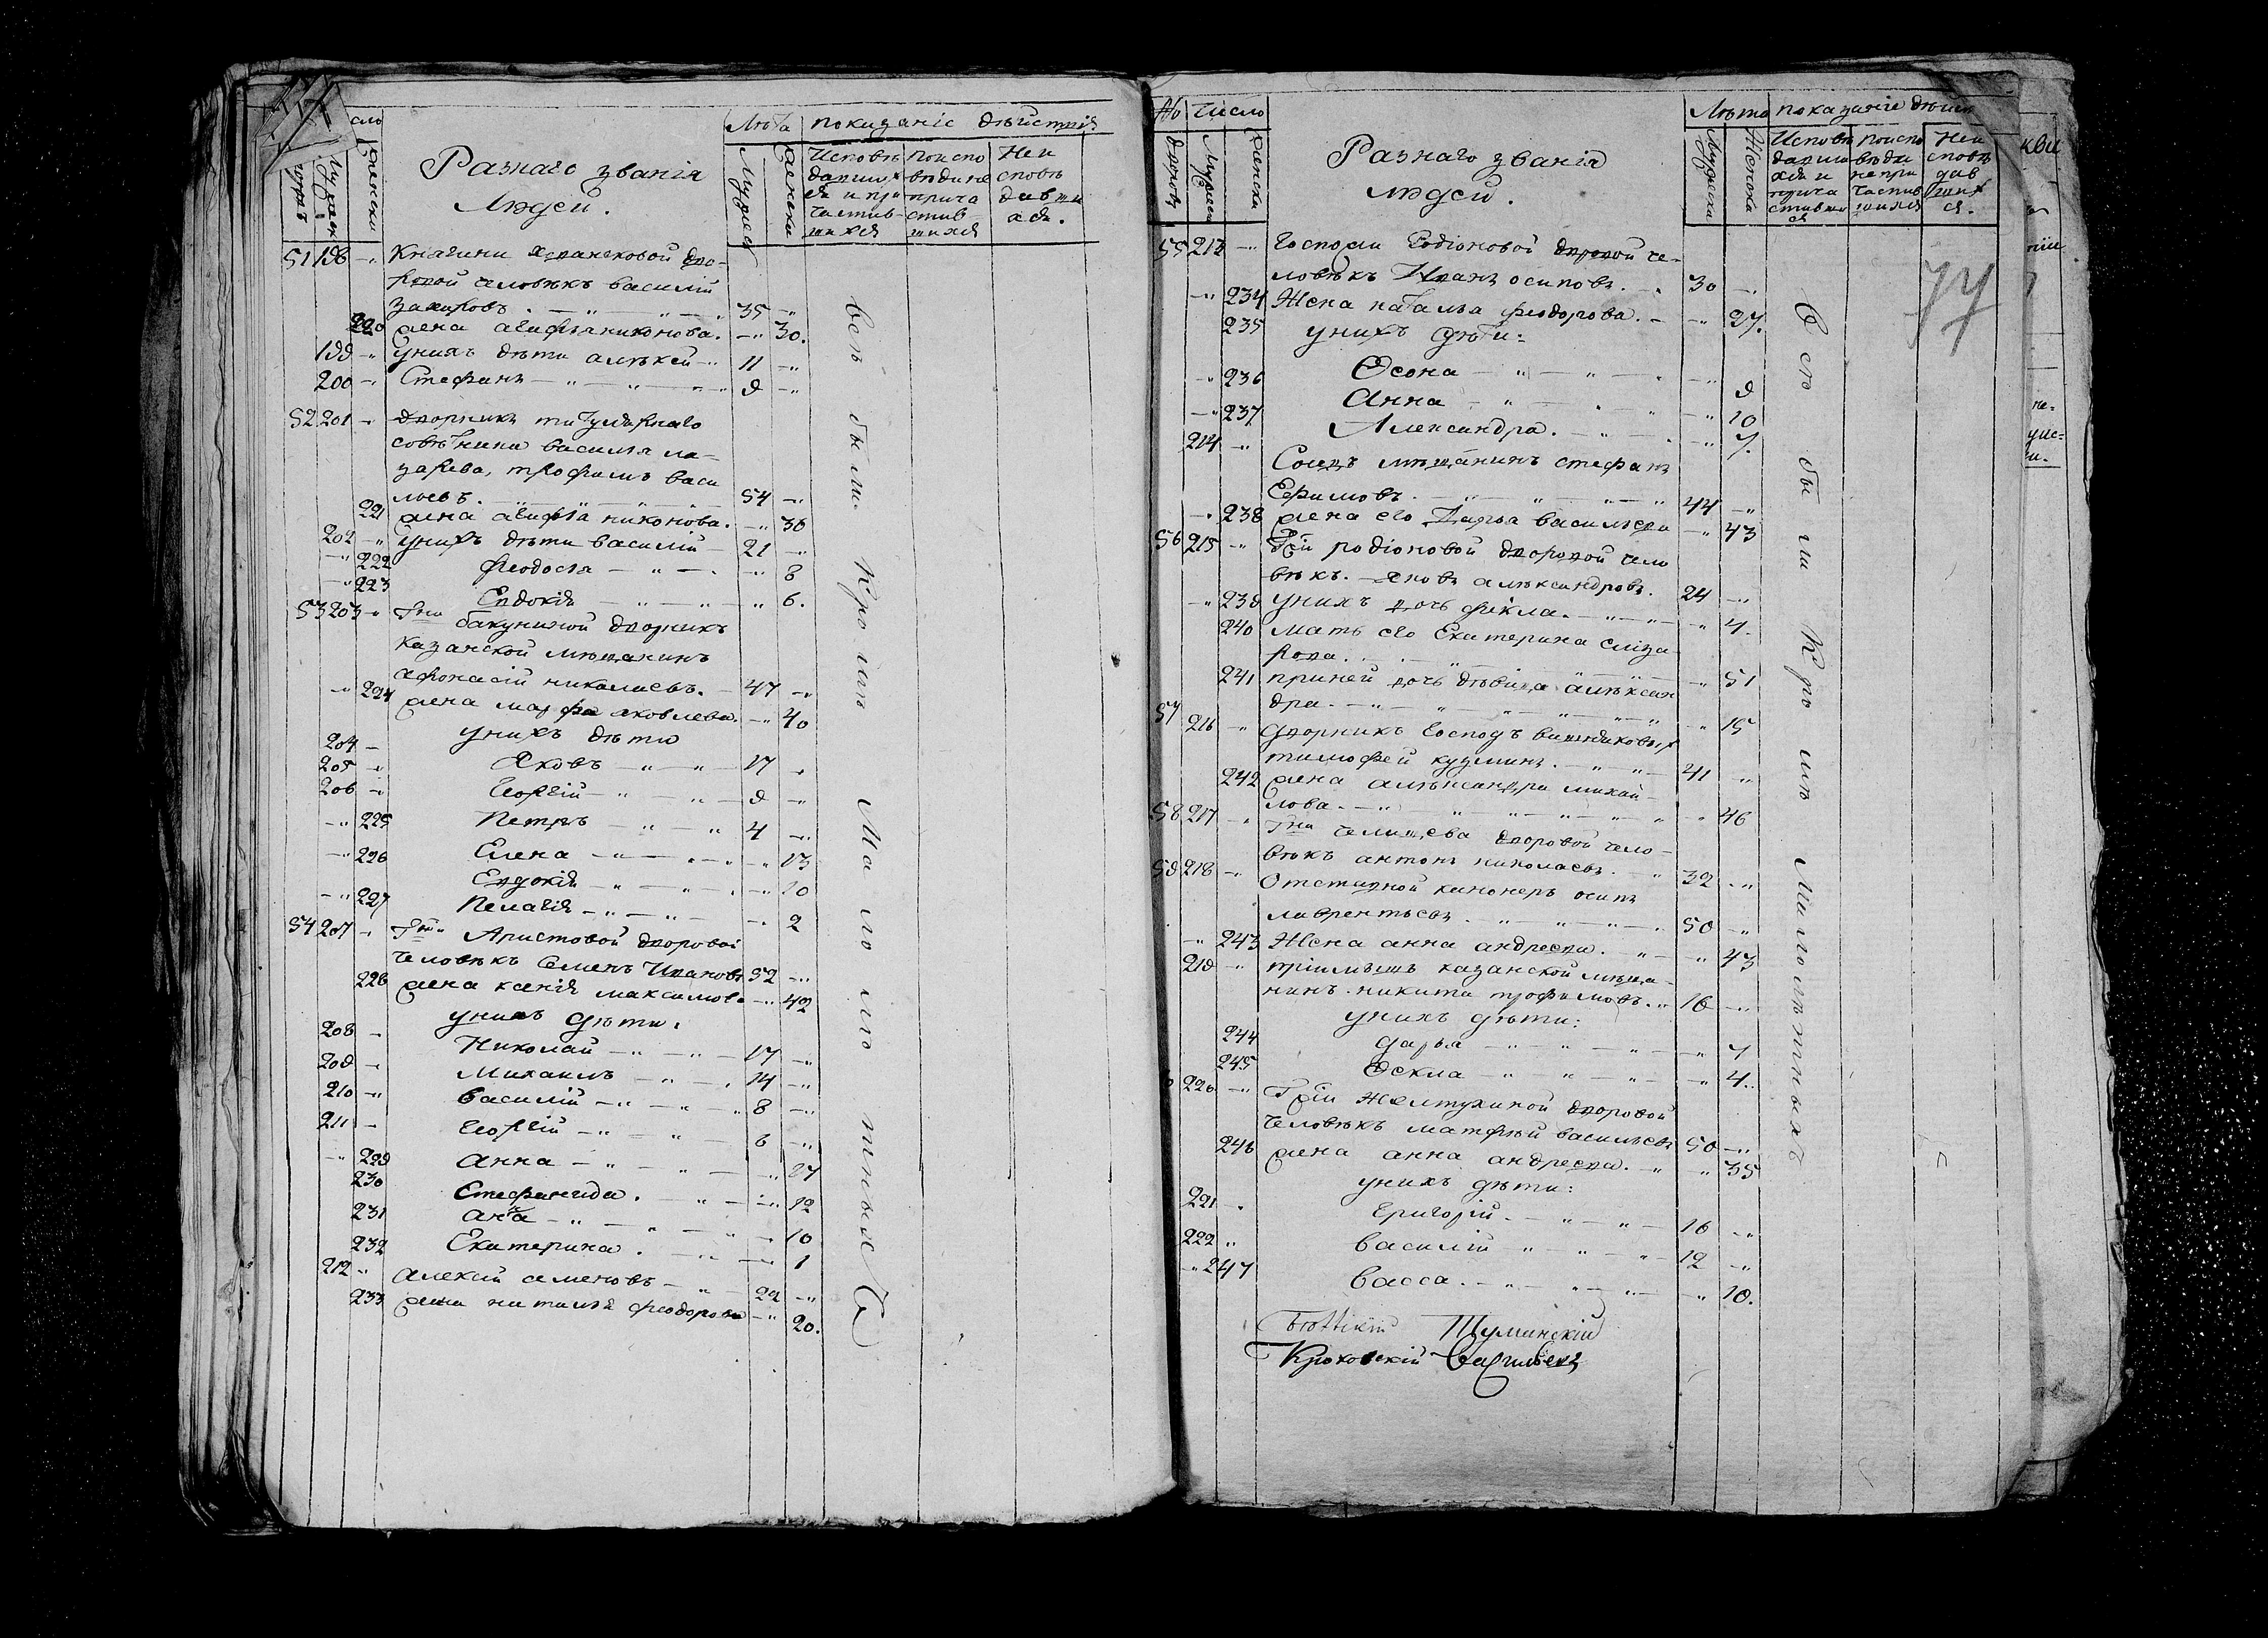 сло
Лѣта показаніе дѣйствія
дворовъ
Мужеск
женски
Разнаго званія
Людей.
Мужеск
женски
Исповѣ
давших
ся и при
частив
шихся
поиспо
вѣди не
прича
стив
шихся
Неи
сповѣ
давши
хся.
51 198 —„ Княгини дво-
ровой человѣкъ василій
захаровъ . — „ — „ 35 —„
220 жена агафья никонова. —„ 30.
199 —„ унихъ дѣти алѣксѣй —„ 11 —„
200 —„ Стефанъ — „ — „ — „ 9 —„
52 201 —„ дворникъ титулярнаго
совѣтника василья ла-
зарева, трофимъ васи
льевъ. — „ — „ — „ 54 —„
221 жена агафья никонова. —„ 36
202 —„ унихъ дѣти василій — 21 —„
—„ 222 феодосья — „ — . —„ 8
—„ 223 Евдокія — „ — „ — „ 6.
53 203 —„ Гжи бакуниной дворникъ
казанской мѣщанинъ
афонасій николаевъ. — 47 —„
—„ 224 жена марфа яковлева. —„ 40
унихъ дѣти
204 — Яковъ — „ — „ — 17 „
205 —„ Георгій — „ — „ — 9 —„
206 —„ Петръ — „ — „ 4 —„
—„ 225 Елена — „ — „ — „ —„ 13
—„ 226 Евдокія — „ — „ . —„ 10
—„ 227 Пелагія — „ — „ — —„ 2
54 207 —„ Гжи Аристовой дворовой
человѣкъ Семенъ Ивановъ 52 —„
228 жена ксенія максимова —„ 42
унихъ дѣти.
208 — Николай — „ — „ — 17 —„
209 —„ Михаилъ — „ — „ 14 —„
210 —„ Василій — „ — „ — „ 8 —„
211 — Георгій — „ — „ — 6 —„
—„ 229 Анна — „ — „ — —„ 27
230 Стефанида. — „ — —„ 12
231 Анна — „ — „ — „ — 10
232 Екатерина. — „ — —„ 1
212 —„ Алексѣй семеновъ — „ — 22 —„
233 жена наталья феодорова —„ 20.
всѣ были кромѣ малолѣтныхъ
№ число
Лѣта показаніе дѣйст
дворовъ
Мужеск
женски
Разнаго званія
людей.
Мужески
Женска
Исповѣ
давши
хся и
прича
стивши
ся
поиспо
вѣди
непри
частив
шихся
Неи
сповѣ
дав
ших
ся.
77
55 213 —„ Госпожи Родіоновой дворовой че-
ловѣкъ Иванъ осиповъ. — „ 30 —„
—„ 234 Жена наталья феодорова. — —„ 27.
235 унихъ дѣти:
—„ 236 — „ — „ — . —„ 9
—„ 237 Анна — „ — „ — „ —„ 10
Александра. — „ — . —„ 7.
214 —„ мѣщанинъ стефанъ
Ефимовъ. — „ — „ — „ — „ 44 —„
—„ 238 жена его Дарья васильева —„ 43
56 215 —„ Гжи родіоновой дворовой чело
вѣкъ. — яковъ алѣксандровъ. 24 —„
—„ 239 унихъ дочь фекла. — „ — „ — „ 4.
240 Мать его Екатерина елиза
рова. — „ — „ — „ 51
241 приней дочь дѣвица алѣксан
дра. — „ — „ — „ — „ „ 15
57 216 —„ дворникъ Господъ
тимофей кузминъ. — „ — „ — 41 „
242 жена алѣксандра михай-
лова. — „ — „ — „ — „ „ 46
58 217 —„ Гжи челищева дворовой чело-
вѣкъ антонъ николаевъ. — „ 32 —„
59 218 —„ Отставной канонеръ осипъ
лаврентьевъ. — „ — „ — „ 50 —„
—„ 243 Жена анна андреева. — „ — „ 43
219 —„ пріимышъ казанской мѣща-
нинъ. никита трофимовъ. — „ 16 —„
унихъ дѣти:
244 дарья — „ — „ — „ — „ 7
245 Фекла — „ — „ — „ — „ 4.
220 —„ Гжи Желтухиной дворовой
человѣкъ матфей васильевъ 50 —„
246 жена анна андреева. — „ „ 35
унихъ дѣти:
221 —„ Григорій — „ — „ — 16 —„
222 „ василій — „ — „ — „ — 12 —„
—„ 247 Васса. — „ — „ — „ — „ 10.
всѣ были кромѣ малолѣтныхъ
Туминскій
Крюковскій Васильевъ